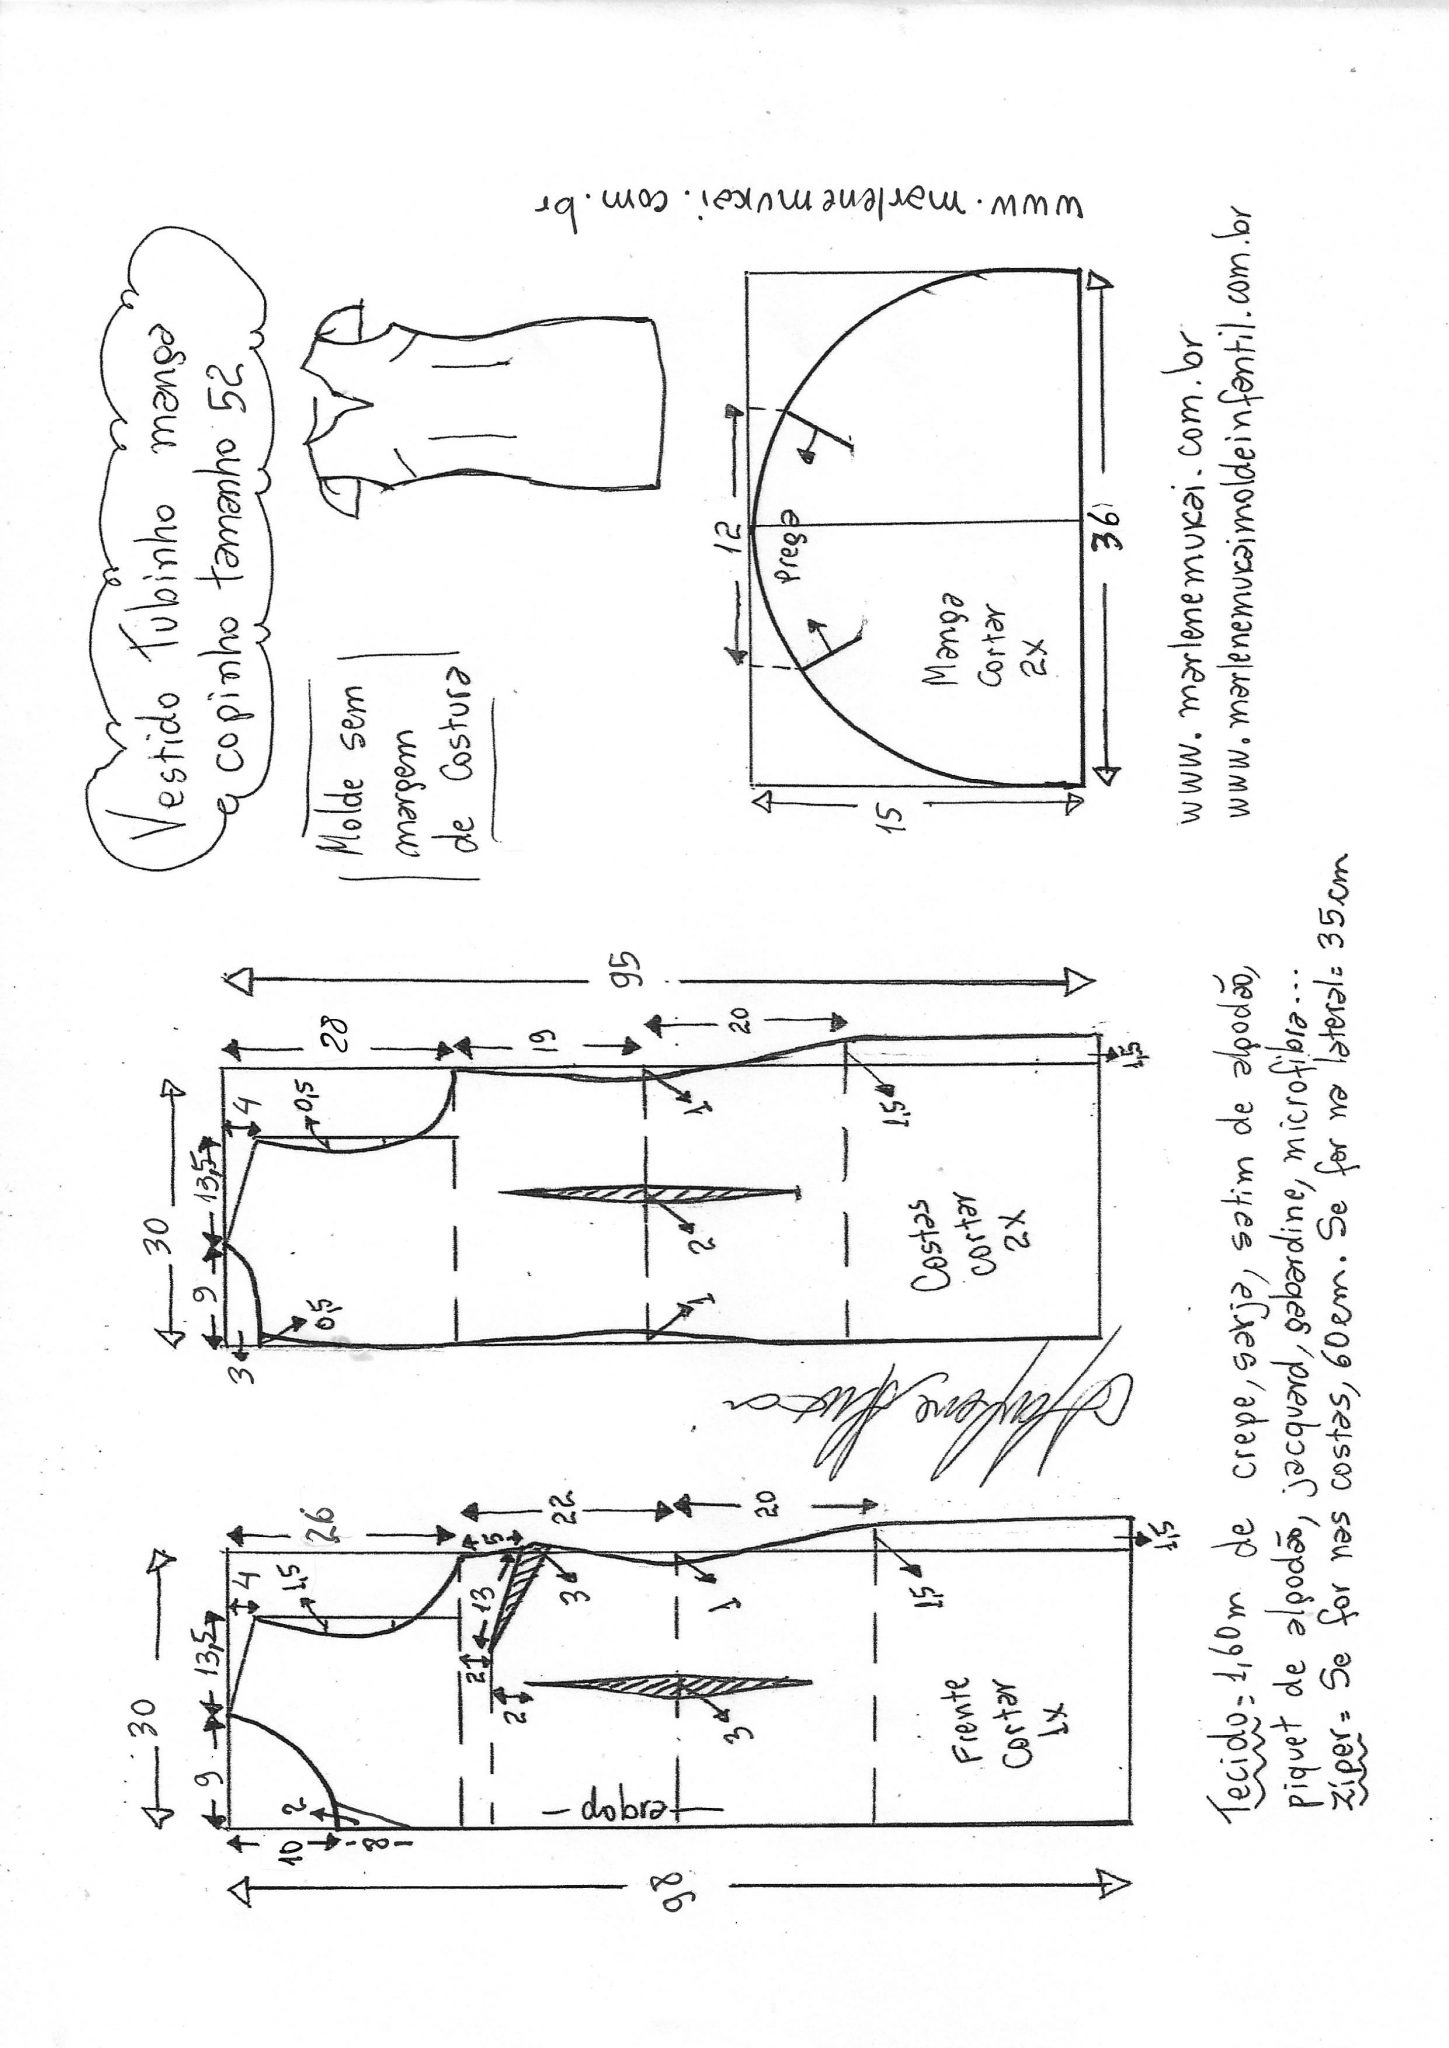 Vestido Tubinho manga
copinho tamanho 52
Molde sem
margem
de costura
www.marlenemukai.com.br
30
9
13,5
4
1,5
26
10
2
8
5
13
3
2
2
22
1
3
20
1,5
1,5
dobra
98
Frente
Cortar
1X
30
9
13,5
4
0,5
28
3
0,5
19
1
2
1
20
1,5
1,5
95
Costas
cortar
2X
12
Prega
15
36
Manga
cortar
2X
www.marlenemukai.com.br
www.marlenemukaimoldeinfantil.com.br
Tecido= 1,60m de crepe, sarja, setim de algodão,
piquet de algodão, jacquard, gabardine, microfibra...
Zíper= Se for nas costas, 60cm. Se for na lateral= 35cm